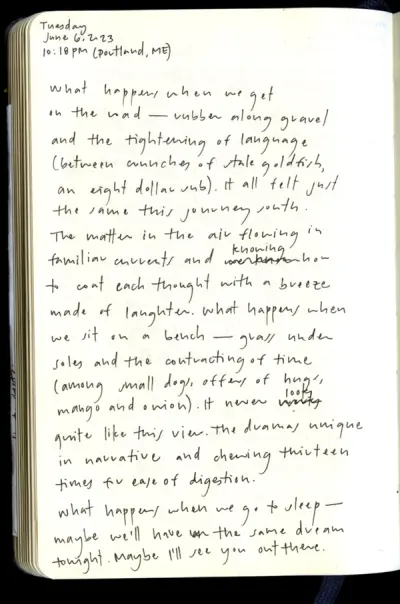 Tuesday
June 6, 2023
10:18 PM (Portland, ME)
What happens when we get
on the road — rubber along gravel
and the tightening of language
(between crunches of stale goldfish,
an eight dollar sub). It all felt just
the same this journey south.
The matter in the air flowing in
familiar currents and knowing how
to coat each thought with a breeze
made of laughter. What happens when
we sit on a bench — grass under
soles and the contracting of time
(among small dogs, offers of hugs,
mango and onion). It never looks
quite like this view. The dramas unique
in narrative and chewing thirteen
times for ease of digestion.
What happens when we go to sleep —
maybe we'll have the same dream
tonight. Maybe I'll see you out there.